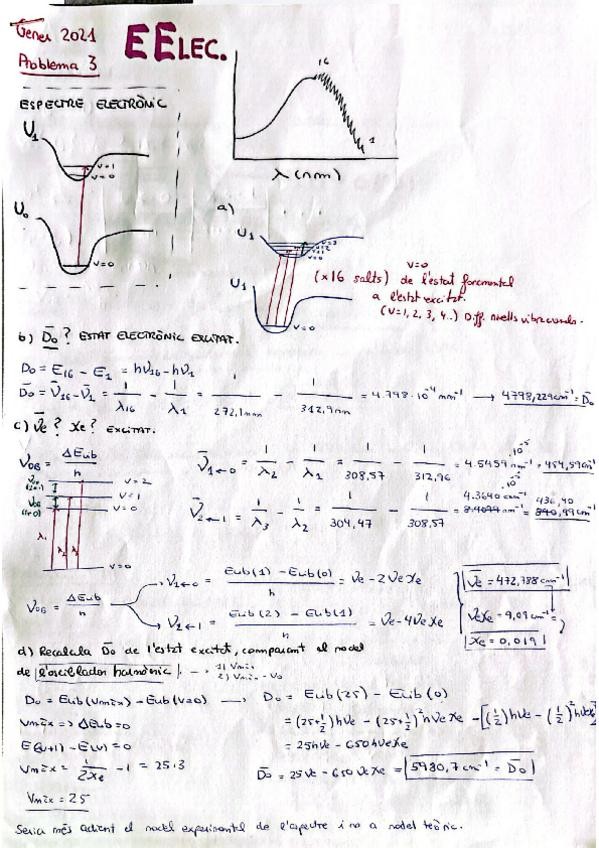 Gener 2021
EELEC.
Problema 3
16
1
λ (nm)
ESPECTRE ELECTRÒNIC
U₁
V=1
V=0
U₀
V=0
a)
U₁
V=3
V=2
V=1
V=0
U₁
V=0
V=0
(x16 salts) de l'estat fonamental
a l'estat excitat.
(V=1, 2, 3, 4..) Diff. nivells vibracionals.
b) D̄₀? ESTAT ELECTRÒNIC EXCITAT.
D₀ = E₁₆ - E₁ = hν₁₆ - hν₁
D̄₀ = ν̄₁₆ - ν̄₁ = 1/λ₁₆ - 1/λ₁ = 1/272,1nm - 1/312,9nm = 4.798·10⁻⁴ nm⁻¹ → 4798,229cm⁻¹ = D̄₀
c) ν̄e? xe? EXCITAT.
ν₀B = ΔEvib/h
V=2
V=1
V=0
λ₁ λ₂ λ₃
V=0
ν̄₁←₀ = 1/λ₂ - 1/λ₁ = 1/308,57 - 1/312,96 = 4.5459·10⁻⁵ nm⁻¹ = 454,59cm⁻¹
ν̄₂←₁ = 1/λ₃ - 1/λ₂ = 1/304,47 - 1/308,57 = 4.3640·10⁻⁵ = 436,40
ν₀B = ΔEvib/h
ν₁←₀ = Evib(1) - Evib(0)/h = νe - 2νexe
ν₂←₁ = Evib(2) - Evib(1)/h = νe - 4νexe
ν̄e = 472,788cm⁻¹
ν̄exe = 9,09cm⁻¹
xe = 0,0191
d) Recalcula D̄₀ de l'estat excitat, comparant el model
de l'oscil·lador harmònic → 1) Vmàx
2) Vmàx - V₀
D₀ = Evib(Vmàx) - Evib(V=0) → D₀ = Evib(25) - Evib(0)
Vmàx => ΔEvib = 0
= (25+1/2)hνe - (25+1/2)²hνexe - [(1/2)hνe - (1/2)²hνexe]
E(v+1) - E(v) = 0
= 25hνe - 650hνexe
Vmàx = 1/2xe - 1 = 25.3
D̄₀ = 25νe - 650νexe = 5980,7cm⁻¹ = D̄₀
Vmàx = 25
Seria més adient el model experimental de l'espectre i no a model teòric.